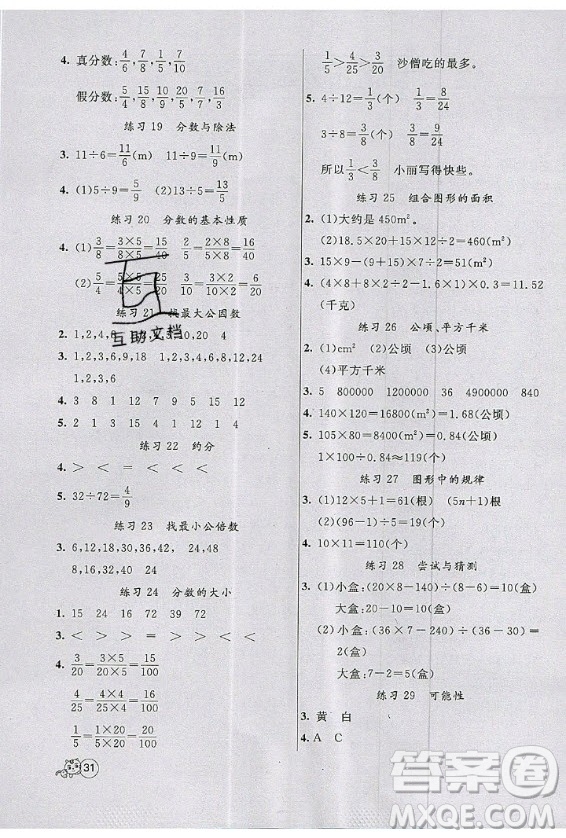 4. 真分数: 4/6, 7/8, 1/5, 7/8
假分数: 5/4, 15/8, 10/9, 9/5, 15/7, 20/16
练习 19 分数与除法
3. 11÷6=11/6(m) 11÷6=11/6(m)
4. (1)5÷9=5/9 (2)13÷5=13/5
练习 20 分数的基本性质
4. (1)3/8=3×5/8×5=15/40 2/5=2×8/5×8=16/40
(2)5/4=5×5/4×5=25/20 3/10=3×2/10×2=6/20
练习 21 找最大公因数
2. 1,2,4,8 1,2,4,5,10,20 4
3. 1,2,3,6,9,18 1,2,3,4,6,8,12,24
1,2,3,6
4. 3 8 1 4 1 5 12 12
5. 1 2 1 7 8 9
练习 22 约分
4. > < = = < =
5. 32÷72=4/9
练习 23 找最小公倍数
3. 6,12,18,30,36,42 24,48
8,16,24,32,40,48 24
练习 24 分数的大小
1. 15 24 16 72 39 72
3. > < < > < <
4. 3/20=3×5/20×5=15/100
4/25=4×4/25×4=16/100
1/5=1×20/5×20=20/100
31
1/5>4/25>3/20 沙僧吃的最多。
5. 4÷12=1/3(个) 1/3=8/24
3÷8=3/8(个) 3/8=9/24
所以1/3<3/8 小丽写得快些。
练习 25 组合图形的面积
2. (1)大约是450m²。
(2)18.5×20+15×12÷2=460(m²)
3. 15×9-(9+15)×(9-6)÷2=99(m²)
4. (4×8+4×2÷2-1.6×1)×0.3=11.52
(千克)
练习 26 公顷、平方千米
2. (1)cm² (2)公顷 (3)公顷
(4)平方千米
3. 5 800000 1200000 36000 40 840
4. 140×120=16800(m²)=1.68(公顷)
5. 105×80=8400(m²)=0.84(公顷)
1×100÷0.84≈119(个)
练习 27 图形中的规律
3. (1)12×5+1=61(根) (5n+1)(根)
(2)(96-1)÷5=19(个)
4. 10×11=110(个)
练习 28 尝试与猜测
3. (1)小盒:(20×8-140)÷(8-6)=10(盒)
大盒:20-10=10(盒)
(2)小盒:(36×7-240)÷(36-30)
=2(盒)
大盒:7-2=5(盒)
练习 29 可能性
3. 黄 白
4. A C
互助文档
答案卷
MXQE.COM